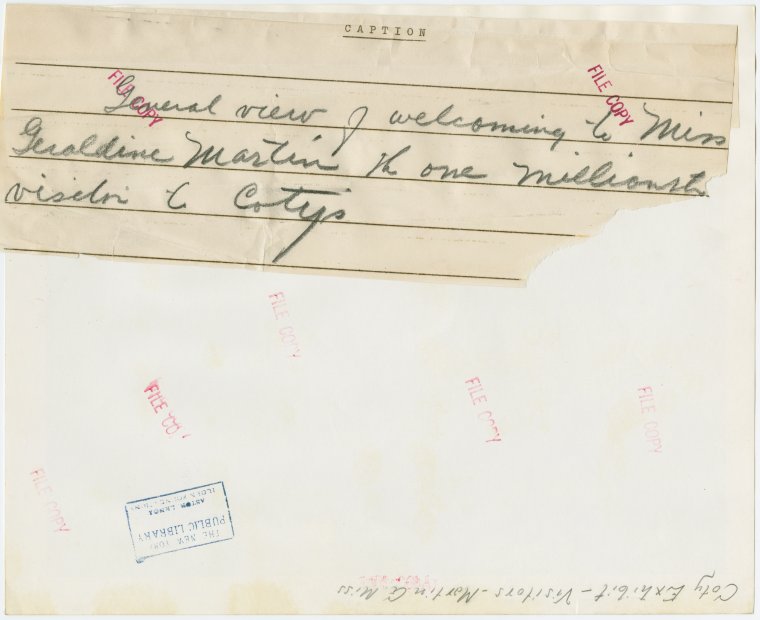 CAPTION
General view of welcoming to Miss
Geraldine Martin th one millionth
visitor to Cotys
FILE COPY
FILE COPY
FILE COPY
FILE CO
FILE COPY
FILE COPY
FILE COPY
THE NEW YORK
PUBLIC LIBRARY
ASTOR, LENOX
TILDEN FOUNDATIONS
Coty Exhibit - Visitors - Martin G. Miss